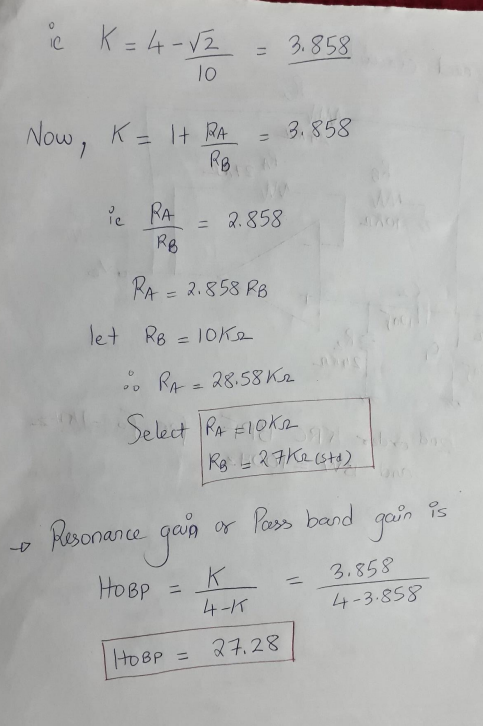 ie K = 4 - √2/10 = 3.858
Now, K = 1 + RA/RB = 3.858
ie RA/RB = 2.858
RA = 2.858 RB
let RB = 10KΩ
∴ RA = 28.58KΩ
Select RA = 10KΩ
RB = 27KΩ (std)
→ Resonance gain or Pass band gain is
HOBP = K/4-K = 3.858/4-3.858
HOBP = 27.28